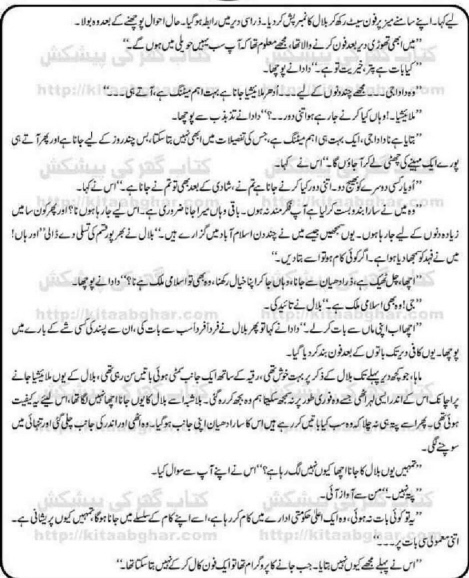 لیے کہا۔ اپنے سامنے میز پر فون سیٹ رکھ کر بلال کا نمبر پش کر دیا۔ ذرا سی دیر میں رابطہ ہو گیا۔ حال احوال پوچھنے کے بعد وہ بولا۔
”میں ابھی تھوڑی دیر بعد فون کرنے والا تھا، مجھے معلوم تھا کہ آپ سب یہیں حویلی میں ہوں گے۔“
”کیا بات ہے پتر، خیریت تو ہے۔“ دادا نے پوچھا۔
”وہ دادا جی۔۔۔ مجھے چند دنوں کے لیے۔۔۔ ادھر ملائیشیا جانا ہے بہت اہم میٹنگ ہے، آتے ہی۔۔۔“
”ملائیشیا۔ اوہاں کیا کرنے جا رہے ہو اتنی دور۔۔؟“ دادا نے تذبذب سے پوچھا۔
”بتایا ہے نا دادا جی، ایک بہت ہی اہم میٹنگ ہے، جس کی تفصیلات میں ابھی نہیں بتا سکتا، بس چند روز کے لیے جانا ہے اور پھر آتے ہی
پورے ایک مہینے کی چھٹی لے کر آ جاؤں گا۔“ اس نے کہا۔
”او یار کسی دوسرے کو بھیج دو۔ اتنی دور کیا کرنے جانا ہے تم نے، شادی کے بعد بھی تو تم نے جانا ہے۔“ اس نے کہا۔
”وہ میں نے سارا بندوبست کر لیا ہے آپ فکر مند نہ ہوں۔ باقی وہاں میرا جانا ضروری ہے۔ اس لیے جا رہا ہوں نا؟ اور پھر کون سا میں
زیادہ دنوں کے لیے جا رہا ہوں۔ یوں سمجھیں جیسے میں نے چند دن اسلام آباد میں گزارے ہیں۔“ بلال نے بھرپور قسم کی تسلی دے ڈالی ”اور ہاں!
میں نے فہد کو سمجھا دیا ہوا ہے۔ اگر کوئی کام ہو تو اسے بتا دیں۔“
”اچھا، چل ٹھیک ہے، ذرا دھیان سے جانا، وہاں جا کر اپنا خیال رکھنا، وہ بھی تو اسلامی ملک ہے نا؟“ دادا نے پوچھا۔
”جی! وہ بھی اسلامی ملک ہے۔“ بلال نے تائید کی۔
”اچھا اب اپنی ماں سے بات کر لے۔“ دادا نے کہا تو پھر بلال نے فرداً فرداً سب سے بات کی، ان سے پسند کی کسی شے کے بارے میں
پوچھا۔ یوں کافی دیر تک باتوں کے بعد فون بند کر دیا گیا۔
ماہا، جو کچھ دیر پہلے تک بلال کے ذکر پر بہت خوش تھی، رقیہ کے ساتھ ایک جانب سمٹی ہوئی باتیں سن رہی تھی، بلال کے یوں ملائیشیا جانے
پر اچانک اس کے اندر ایسی لہر اٹھی جسے وہ فوری طور پر نہ سمجھ سکی تاہم وہ بجھ کر رہ گئی۔ بلاشبہ اسے بلال کا یوں جانا اچھا نہیں لگا تھا، اس لیئے یہ کیفیت
ہوئی تھی۔ پھر اسے پتہ ہی نہ چلا کہ وہ سب کیا باتیں کر رہے ہیں اس کا سارا دھیان اپنی جانب ہو گیا۔ وہ اٹھی اور اندر کی جانب چلی گئی اور تنہائی میں
سوچنے لگی۔
”تمہیں یوں بلال کا جانا اچھا کیوں نہیں لگ رہا ہے؟“ اس نے اپنے آپ سے سوال کیا۔
”پتہ نہیں۔“ من سے آواز آئی۔
”یہ تو کوئی بات نہ ہوئی، وہ ایک اعلیٰ حکومتی ادارے میں کام کر رہا ہے، اسے اپنے کام کے سلسلے میں جانا ہوگا، تمہیں کیوں پریشانی ہے۔
اتنی معمولی سی بات پر۔۔۔“
”اس نے پہلے مجھے کیوں نہیں بتایا۔ جب جانے کا پروگرام تھا تو ایک فون کال کر کے نہیں بتا سکتا تھا۔“
کتاب گھر کی پیشکش
http://kitaabghar.com